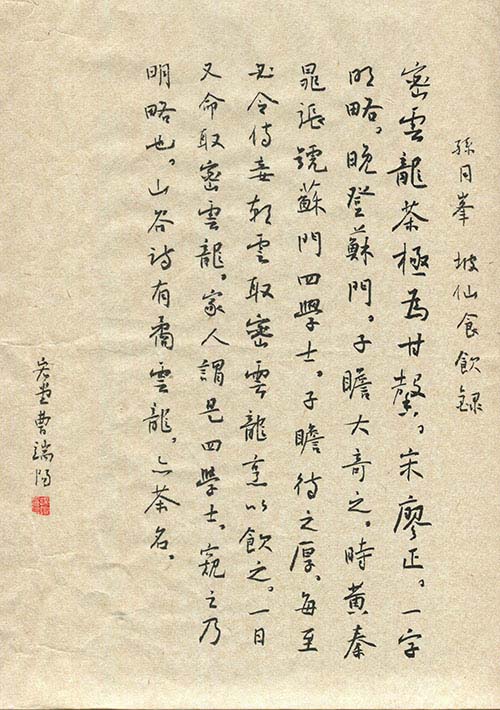 孫月峯 坡仙食飲録
密雲龍茶極為甘馨。宋廖正。一字
明略。晚登蘇門。子瞻大奇之。時黃秦
晁張號蘇門四學士。子瞻待之厚、每至
必令侍妾朝雲取密雲龍烹以飲之。一日
又命取密雲龍。家人謂是四學士。窺之乃
明略也。山谷詩有矞雲龍。亦茶名。
曹端